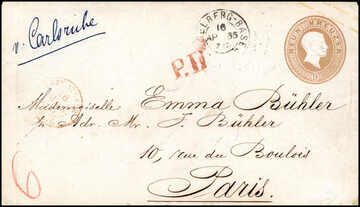 v. Carlsruhe
16
P.D.
NEUN KREUZER
Mademoiselle Emma Bühler
p. Adr. Mr. F. Bühler
10, rue du Boulois
Paris.
6